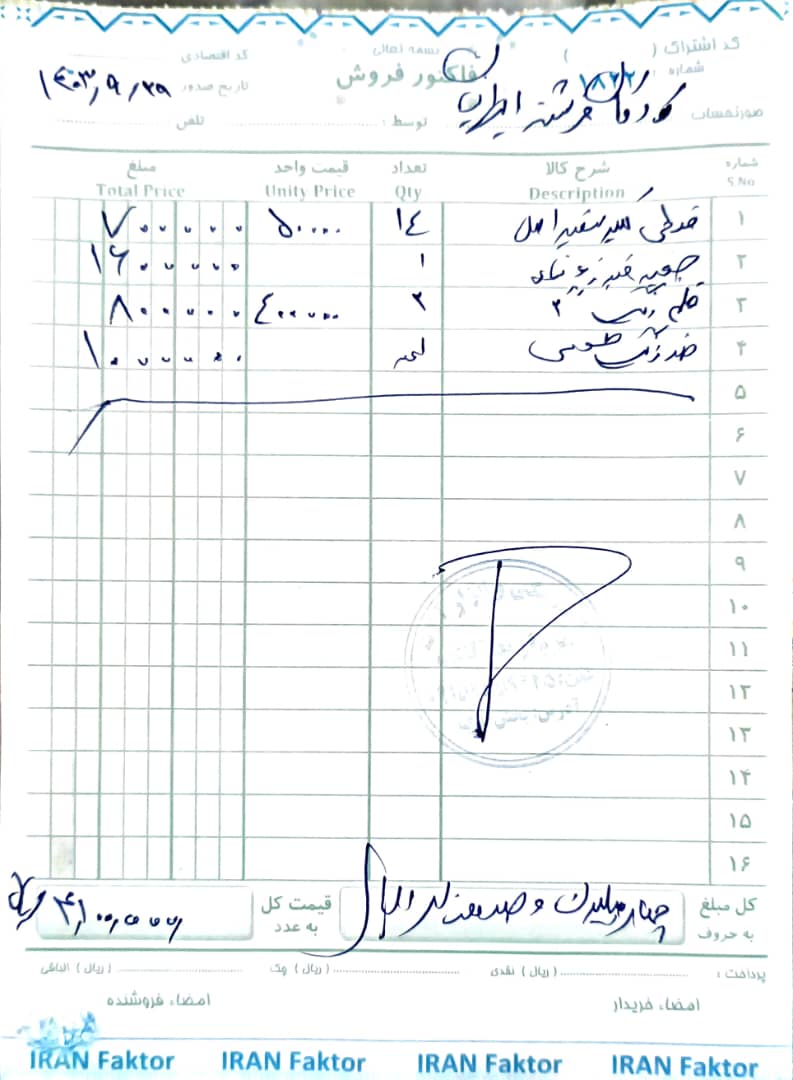 بسمه تعالی
کد اشتراک ( )
کد اقتصادی
فاکتور فروش
شماره ۱۸۶۲
تاریخ صدور ۱۴۰۳/۹/۲۹
صورتحساب کودکان فرشته ایرانیان
توسط :
تلفن
شماره شرح کالا تعداد قیمت واحد مبلغ
S.No Description Qty Unity Price Total Price
۱ قوطی اسپر سفید اصل ۱۴ ۵۰۰۰۰۰ ۷۰۰۰۰۰۰
۲ ۱ ۱۶۰۰۰۰۰
۳ قلم رنگ ۳ ۲ ۴۰۰۰۰۰ ۸۰۰۰۰۰
۴ ضد زنگ طوسی ۱۰۰۰۰۰۰
۵
۶
۷
۸
۹
۱۰
۱۱
۱۲
۱۳
۱۴
۱۵
۱۶
کل مبلغ به حروف چهار میلیون و صد هزار ریال
قیمت کل به عدد ۴,۱۰۰,۰۰۰ ریال
پرداخت : (ریال) نقدی (ریال) چک (ریال) الباقی
امضاء خریدار
امضاء فروشنده
IRAN Faktor IRAN Faktor IRAN Faktor IRAN Faktor